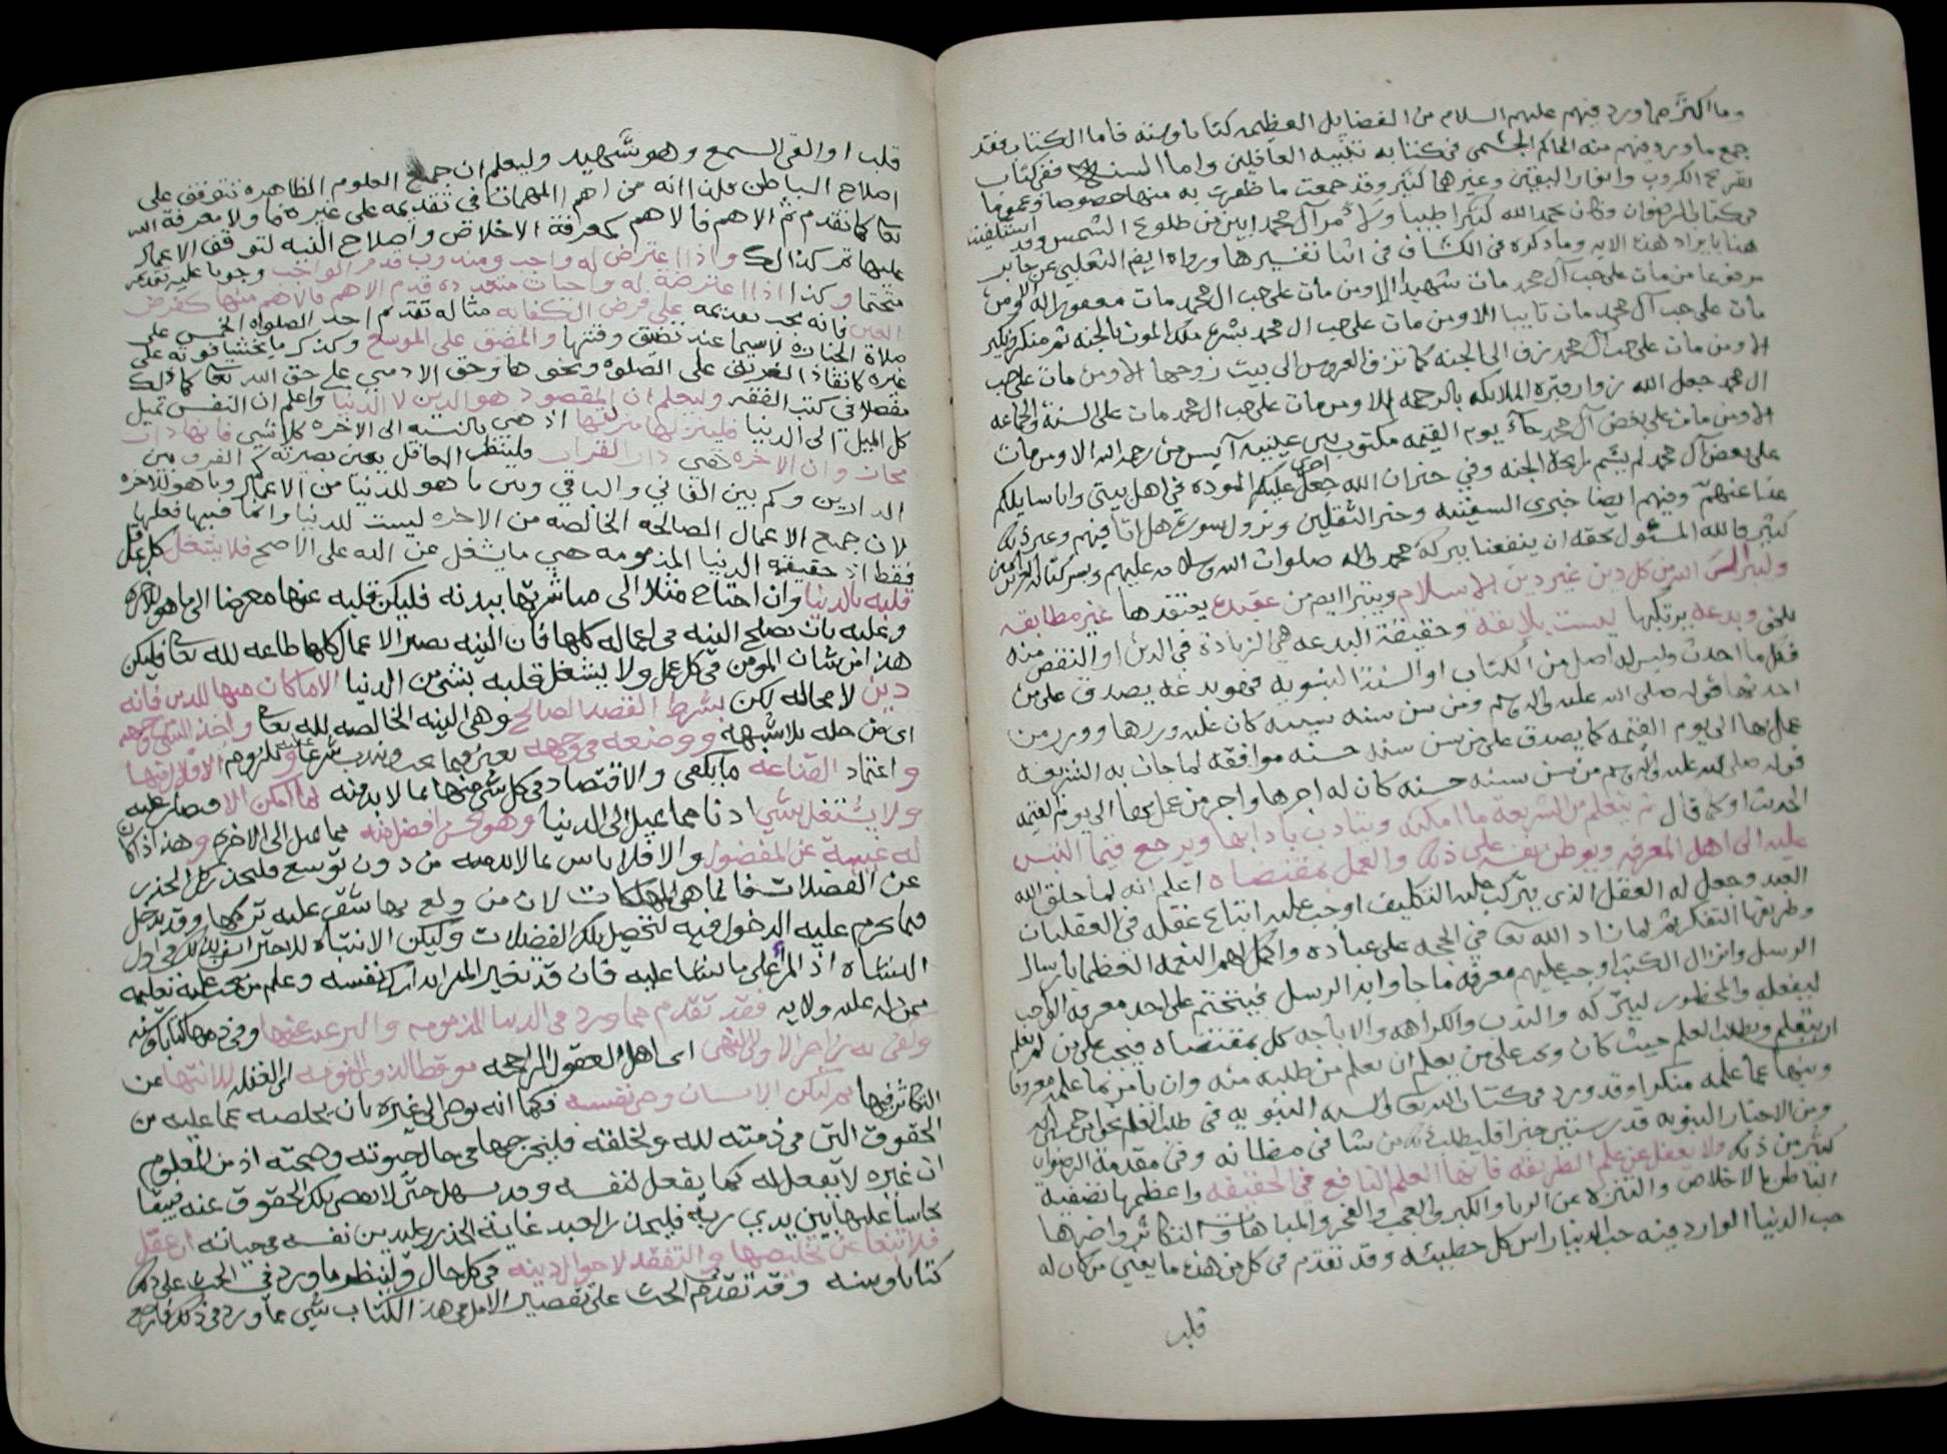 وما اكثر ما ورد فيهم عليهم السلام من الفضايل العظيمه كتابا وسنه فاما الكتاب فقد
جمع ما ورد فيهم منه الحاكم الجشمي في كتابه تنبيه الغافلين واما السنه ففي كتاب
تفريج الكروب وانوار اليقين وغيرهما كثير وقد جمعت ما ظفرت به منها خصوصا وعموما
في كتاب الرضوان وكان بحمد الله كثيرا طيبا آل محمد ابين من طلوع الشمس وقد
هنا بايراد هذه الايه وما ذكره في الكشاف في اثنا تفسيرها ورواه ايضا الثعلبي عن جابر
مرفوعا من مات على حب آل محمد مات شهيدا الا ومن مات على حب ال محمد مات مغفورا له الا ومن
مات على حب آل محمد مات تايبا الا ومن مات على حب ال محمد بشره ملك الموت بالجنه ثم منكر ونكير
الا ومن مات على حب آل محمد يزف الى الجنه كما تزف العروس الى بيت زوجها الا ومن مات على حب
ال محمد جعل الله زوار قبره الملايكه بالرحمه الا ومن مات على حب ال محمد مات على السنة والجماعه
الا ومن مات على بغض آل محمد جآء يوم القيمه مكتوب بين عينيه آيس من رحمة الله الا ومن مات
على بغض آل محمد لم يشم رايحة الجنه وفي خبر ان الله جعل اجري عليكم الموده في اهل بيتي وانا سايلكم
غدا عنهم وفيهم ايضا خبرى السفينه وخبر الثقلين ونزول سورة هل اتا فيهم وغير ذلك
كثير فالله المسئول بحقه ان ينفعنا ببركة محمد واله صلوات الله وسلامه عليهم وببركة كتابه العزيز امين
وليبرا الى الله من كل دين غير دين الاسلام ويتبرا ايضا من عقيدة يعتقدها غير مطابقه
للحق وبدعه يرتكبها ليست بلايقة وحقيقة البدعه هي الزيادة في الدين او النقص منه
فكل ما احدث وليس له اصل من الكتاب او السنة النبويه فهو بدعه يصدق على من
احدثها قوله صلى الله عليه واله وسلم ومن سن سنه سييه كان عليه وزرها ووزر من
عمل بها الى يوم القيمه كما يصدق على من سن سنة حسنه موافقه لما جات به الشريعه
قوله صلى الله عليه واله وسلم من سن سنه حسنه كان له اجرها واجر من عمل بها الى يوم القيمه
الحديث او كما قال ثم يتعلم من الشريعة ما امكنه ويتادب بادابها ويرجع فيما التبس
عليه الى اهل المعرفه ويوطن نفسه على ذلك والعمل بمقتضاه اعلم انه لما خلق الله
العبد وجعل له العقل الذى يتركب عليه التكليف اوجب عليه اتباع عقله في العقليات
وطريقها التفكر ثم لما زاد الله تعالى في الحجه على عباده واكمل لهم النعمة العظما بارسال
الرسل وانزال الكتب اوجب عليهم معرفة ما جاوا به الرسل فيتحتم على احد معرفه الواجب
ليفعله والمحظور ليتركه والندب والكراهه والاباحه كل بمقتضاه فيجب على من لم يعلم
ان يتعلم ويطلب العلم حيث كان ويجب على من يعلم ان يعلم من طلبه منه وان يامر بما علمه معروفا
وينها عما علمه منكرا وقد ورد في كتاب الله تعالى والسنه النبويه في طلب العلم نحو من خمسين اية
ومن الاخبار النبويه قدر ستين خبرا فليطلب ذلك من شا في مظانه وفي مقدمة الرضوان
كثير من ذلك ولا يغفل عن علم الطريقه فانها العلم النافع في الحقيقه واعظمها تصفية
الباطن بالاخلاص والتنزه عن الريا والكبر والعجب والفخر والمباهات والتكاثر واضرها
حب الدنيا الوارد فيه حب الدنيا راس كل خطيئه وقد تقدم في كل من هذه ما يغني من كان له
قلب
قلب او القى السمع وهو شهيد وليعلم ان جميع العلوم الظاهره تتوقف على
اصلاح الباطن فلذا انه من اهم المهمات في تقديمه على غيره فاولا معرفة الله
تعالى كما تقدم ثم الاهم فالاهم كمعرفة الاخلاص واصلاح النيه لتوقف الاعمال
عليها ثم كذالك واذا اعترض له واجب ومندوب قدم الواجب وجوبا عليه تقديمه
متحتما وكذا اذا اعترضه له واجبات متعدده قدم الاهم فالاهم منها كفرض
العين فانه يجب تقديمه على فرض الكفايه مثاله تقديم احد الصلواه الخمس على
صلاة الجنازه لاسيما عند تضيق وقتها والمضيق على الموسع وكذكر ما يخشا فوته على
غيره كانقاذ الغريق على الصلوه ونحوها وحق الادمي على حق الله تعالى كما ذلك
مفصلا في كتب الفقه وليعلم ان المقصود هو الدين لا الدنيا واعلم ان النفس تميل
كل الميل الى الدنيا فلينزلها منزلتها اذ هي بالنسبه الى الاخره كلا شي فانها دار
مجاز وان الاخره هي دار القرار ولينظر العاقل بعين بصيرته كم الفرق بين
الدارين وكم بين الفاني والباقي وبين ما هو للدنيا من الاعمال وما هو للاخره
لان جميع الاعمال الصالحه الخالصه من الاخره ليست للدنيا وانما فيها فعلها
فقط اذ حقيقة الدنيا المذمومه هي ما يشغل عن الله على الاصح فلا يشغل كل عاقل
قلبه بالدنيا وان احتاج مثلا الى مباشرتها ببدنه فليكن قلبه عنها معرضا الى ما هو للاخره
وعليه بان يصلح النيه في اعماله كلها فان النيه تصير الاعمال كلها طاعه لله تعالى فليكن
هذا من شان المومن في كل عمل ولا يشغل قلبه بشي من الدنيا الا ما كان منها للدين فانه
دين لا محاله لكن بشرط القصد الصالح وهي النيه الخالصه لله تعالى واخذ الشي من وجهه
اى من حله بلا شبهه ووضعه في وجهه يعني فيما يجب ويندب شرعا ولزوم الاقلال فيها
واعتماد القناعه ما يكفي والاقتصاد في كل شي منها بما لا بد منه لما امكن الاقتصار عليه
ولا يشتغل بشي ادنا مما يميل الى الدنيا وهو يحسن افضل منه مما يميل الى الاخرة وهذا اذا كان
له غنية عن المفضول والا فلا باس بما لا بد منه من دون توسع فليحذر كل الحذر
عن الفضلات فانما هي المهلكات لان من ولع بها شق عليه تركها وقد يدخل
فيما يحرم عليه الدخول فيه لتحصيل تلك الفضلات وليكن الانتباه للاحتراز من ذلك في اول
النشاه اذ المرء على ما نشا عليه فان قد تغير المرا تدارك نفسه وعلم من يجب عليه تعليمه
ممن له عليه ولايه فقد تقدم مما ورد في الدنيا المذمومه والترغيب عنها وفي ذمها كتابا وسنه
ولفى به زاجرا لاولى النهى اى اهل العقول الراجحه موقظا لذوى النومه اى الغفله للانتها عن
التكاثر فيها ثم ليكن الانسان وصي نفسه فكما انه يوصي الى غيره بان يخلصه عما عليه من
الحقوق التى في ذمته لله ولخلقه فليخرجها في حال حيوته وصحته اذ من المعلوم
ان غيره لا يفعل له كما يفعل لنفسه وقد يسهل حتى لا يقضي تلك الحقوق عنه فيبقا
محاسبا عليها بين يدي ربه فليحذر العبد غاية الحذر وليدين نفسه في حياته ان عقل
فلا يتغافل عن تخليصها والتفقد لاحوال دينه في كل حال ولينظر ما ورد في الحث على ذلك
كتابا وسنه وقد تقدم الحث على تقصير الامل في هذا الكتاب شي مما ورد في ذلك فارجع